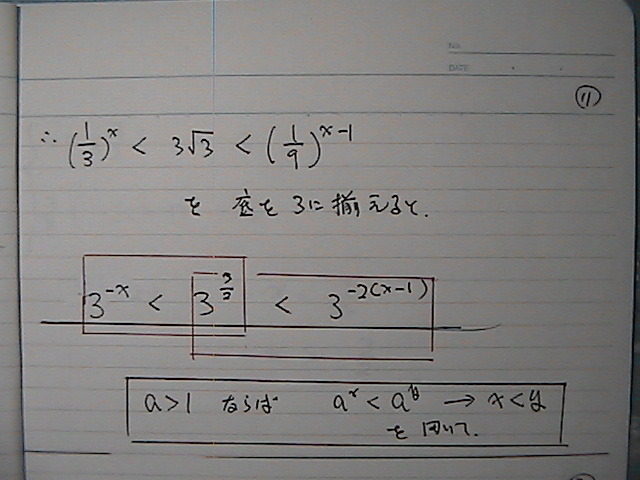 No.
DATE
⑪
∴ (1/3)^x < 3√3 < (1/9)^{x-1}
を 底を3に揃えると.
3^{-x} < 3^{3/2} < 3^{-2(x-1)}
a>1 ならば a^x < a^y → x<y
を用いて.